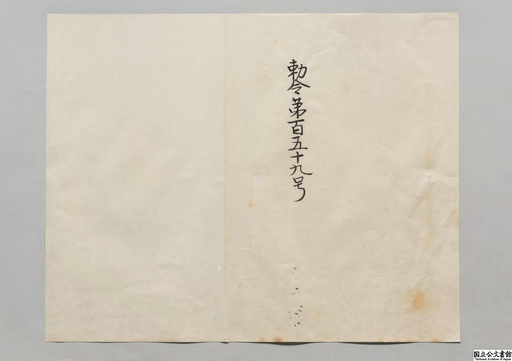 勅令第百五十九号
国立公文書館
National Archives of Japan